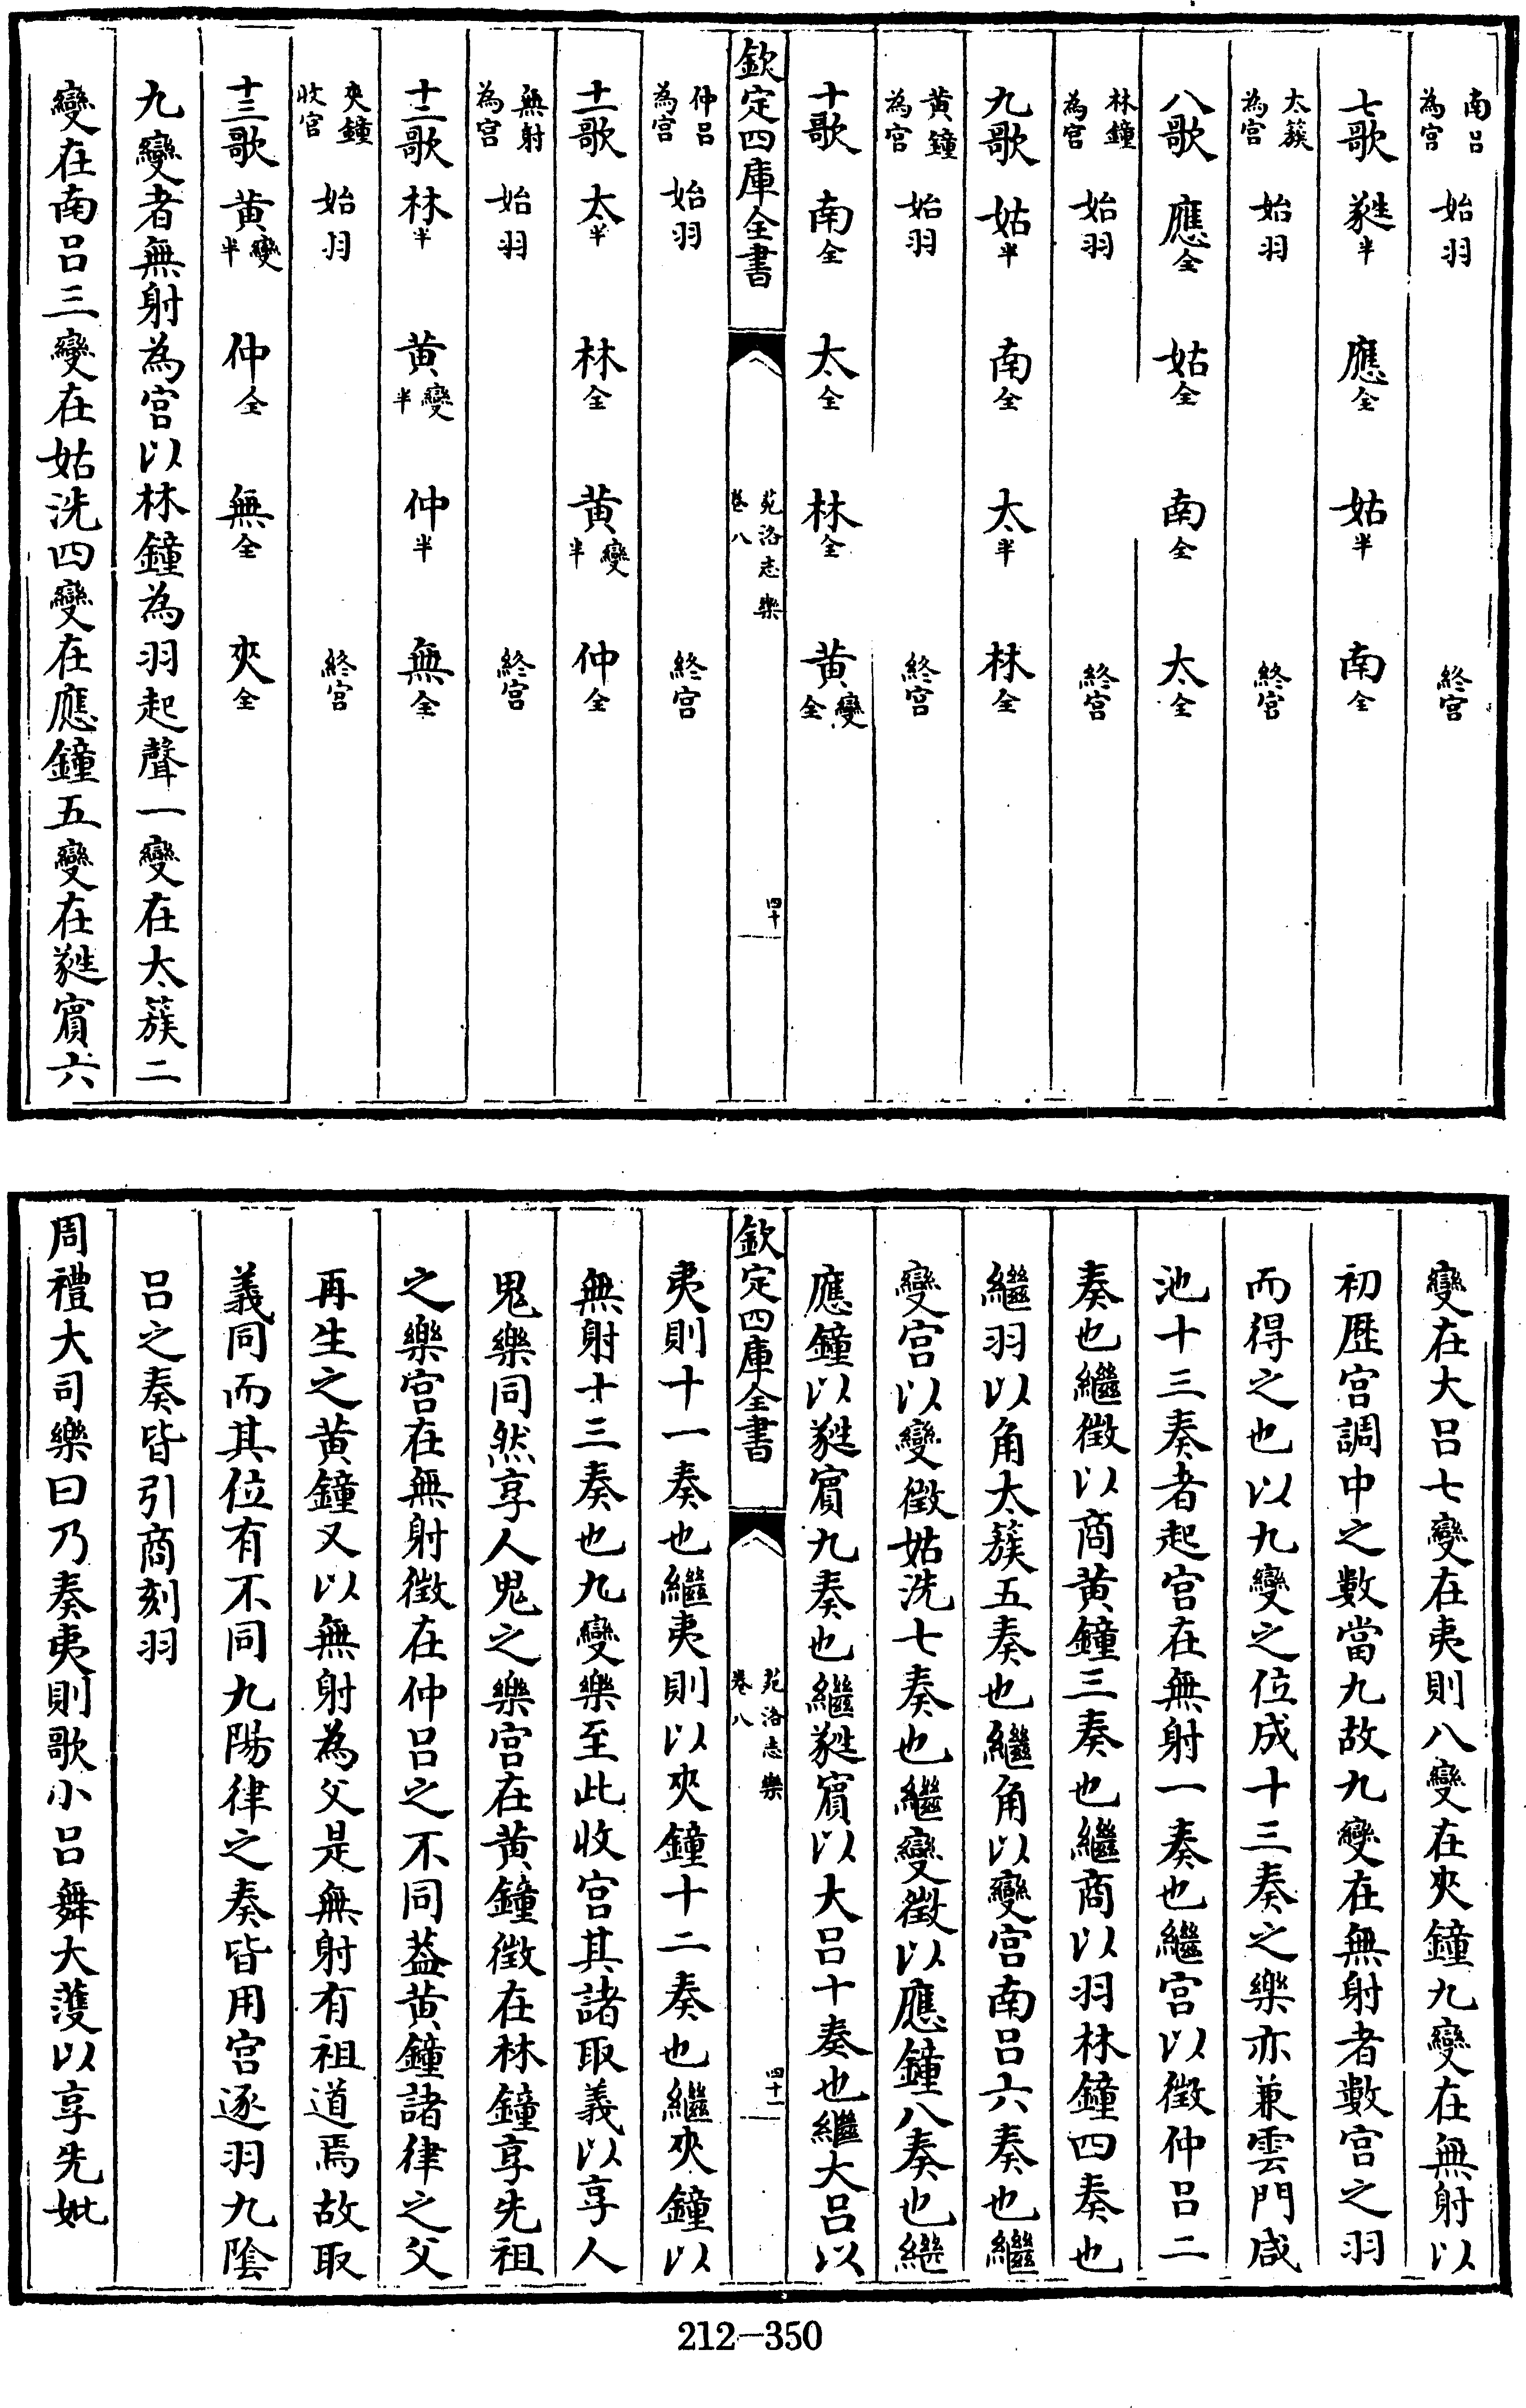 南呂為宮　始羽　終宮
七歌　蕤半　應全　姑半　南全
太簇為宮　始羽　終宮
八歌　應全　姑全　南全　太全
林鐘為宮　始羽　終宮
九歌　姑半　南全　太半　林全
黃鐘為宮　始羽　終宮
十歌　南全　太全　林全　黃變全
欽定四庫全書　苑洛志樂卷八　四十
仲呂為宮　始羽　終宮
十一歌　太半　林全　黃變半　仲全
無射為宮　始羽　終宮
十二歌　林半　黃變半　仲半　無全
夾鐘收宮　始羽　終宮
十三歌　黃變半　仲全　無全　夾全
九變者無射為宮以林鐘為羽起聲一變在太簇二
變在南呂三變在姑洗四變在應鐘五變在蕤賓六
變在大呂七變在夷則八變在夾鐘九變在無射以
初歷宮調中之數當九故九變在無射者數宮之羽
而得之也以九變之位成十三奏之樂亦兼雲門咸
池十三奏者起宮在無射一奏也繼宮以徵仲呂二
奏也繼徵以商黃鐘三奏也繼商以羽林鐘四奏也
繼羽以角太簇五奏也繼角以變宮南呂六奏也繼
變宮以變徵姑洗七奏也繼變徵以應鐘八奏也繼
應鐘以蕤賓九奏也繼蕤賓以大呂十奏也繼大呂以
欽定四庫全書　苑洛志樂卷八　四十一
夷則十一奏也繼夷則以夾鐘十二奏也繼夾鐘以
無射十三奏也九變樂至此收宮其諸取義以享人
鬼樂同然享人鬼之樂宮在黃鐘徵在林鐘享先祖
之樂宮在無射徵在仲呂之不同葢黃鐘諸律之父
再生之黃鐘又以無射為父是無射有祖道焉故取
義同而其位有不同九陽律之奏皆用宮逐羽九陰
呂之奏皆引商刻羽
周禮大司樂曰乃奏夷則歌小呂舞大濩以享先妣
212-350